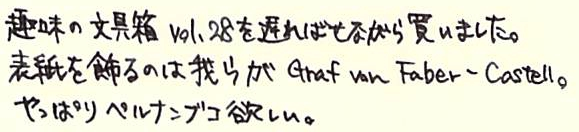 趣味の文具箱 vol.28を遅ればせながら買いました。
表紙を飾るのは我らが Graf von Faber-Castell。
やっぱりペルナンブコ欲しい。